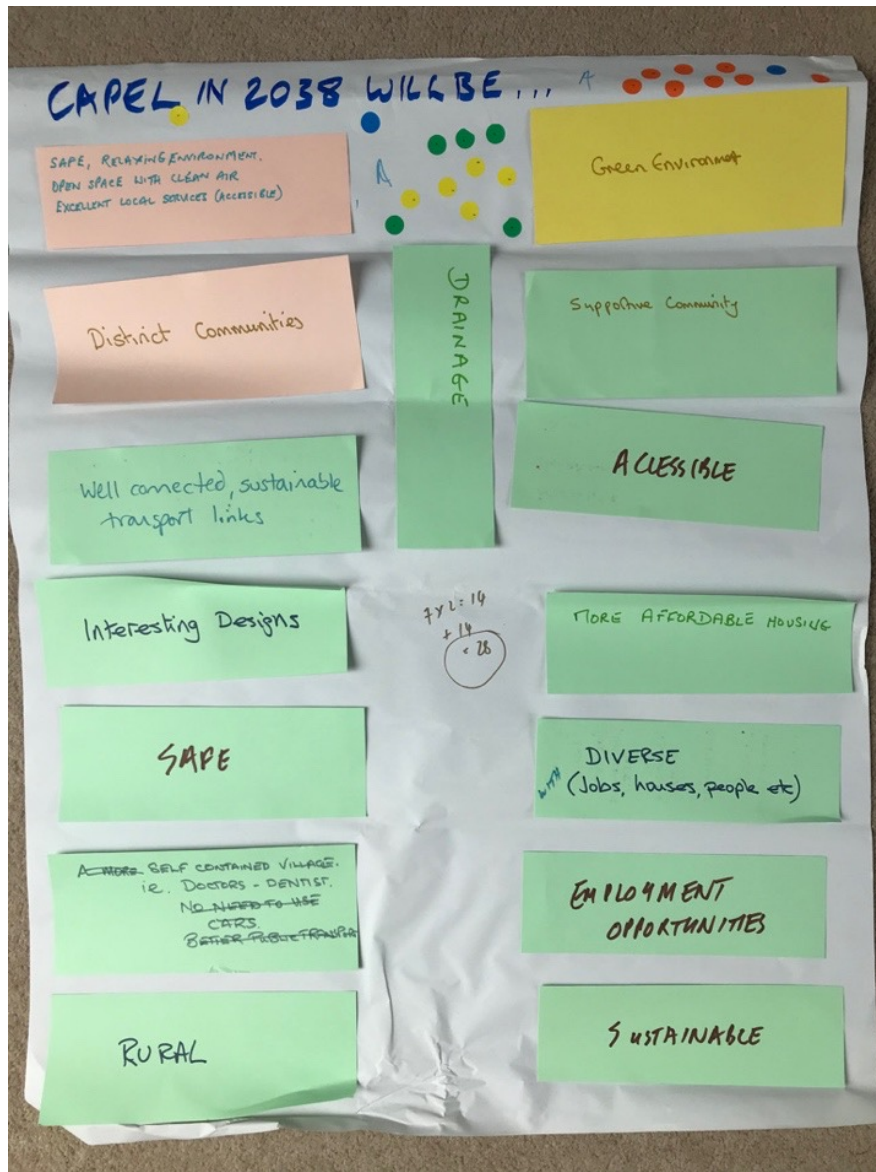 CAPEL IN 2038 WILL BE... A
SAFE, RELAXING ENVIRONMENT.
OPEN SPACE WITH CLEAN AIR
EXCELLENT LOCAL SERVICES (ACCESSIBLE)
A
Green Environment
Distinct Communities
DRAINAGE
Supportive Community
Well connected, sustainable
transport links
ACCESSIBLE
Interesting Designs
7x2=14
+ 14
= 28
MORE AFFORDABLE HOUSING
SAFE
DIVERSE
WITH (Jobs, houses, people etc)
A MORE SELF CONTAINED VILLAGE.
ie. DOCTORS - DENTIST.
NO NEED TO USE
CARS.
BETTER PUBLIC TRANSPORT
EMPLOYMENT
OPPORTUNITIES
RURAL
SUSTAINABLE